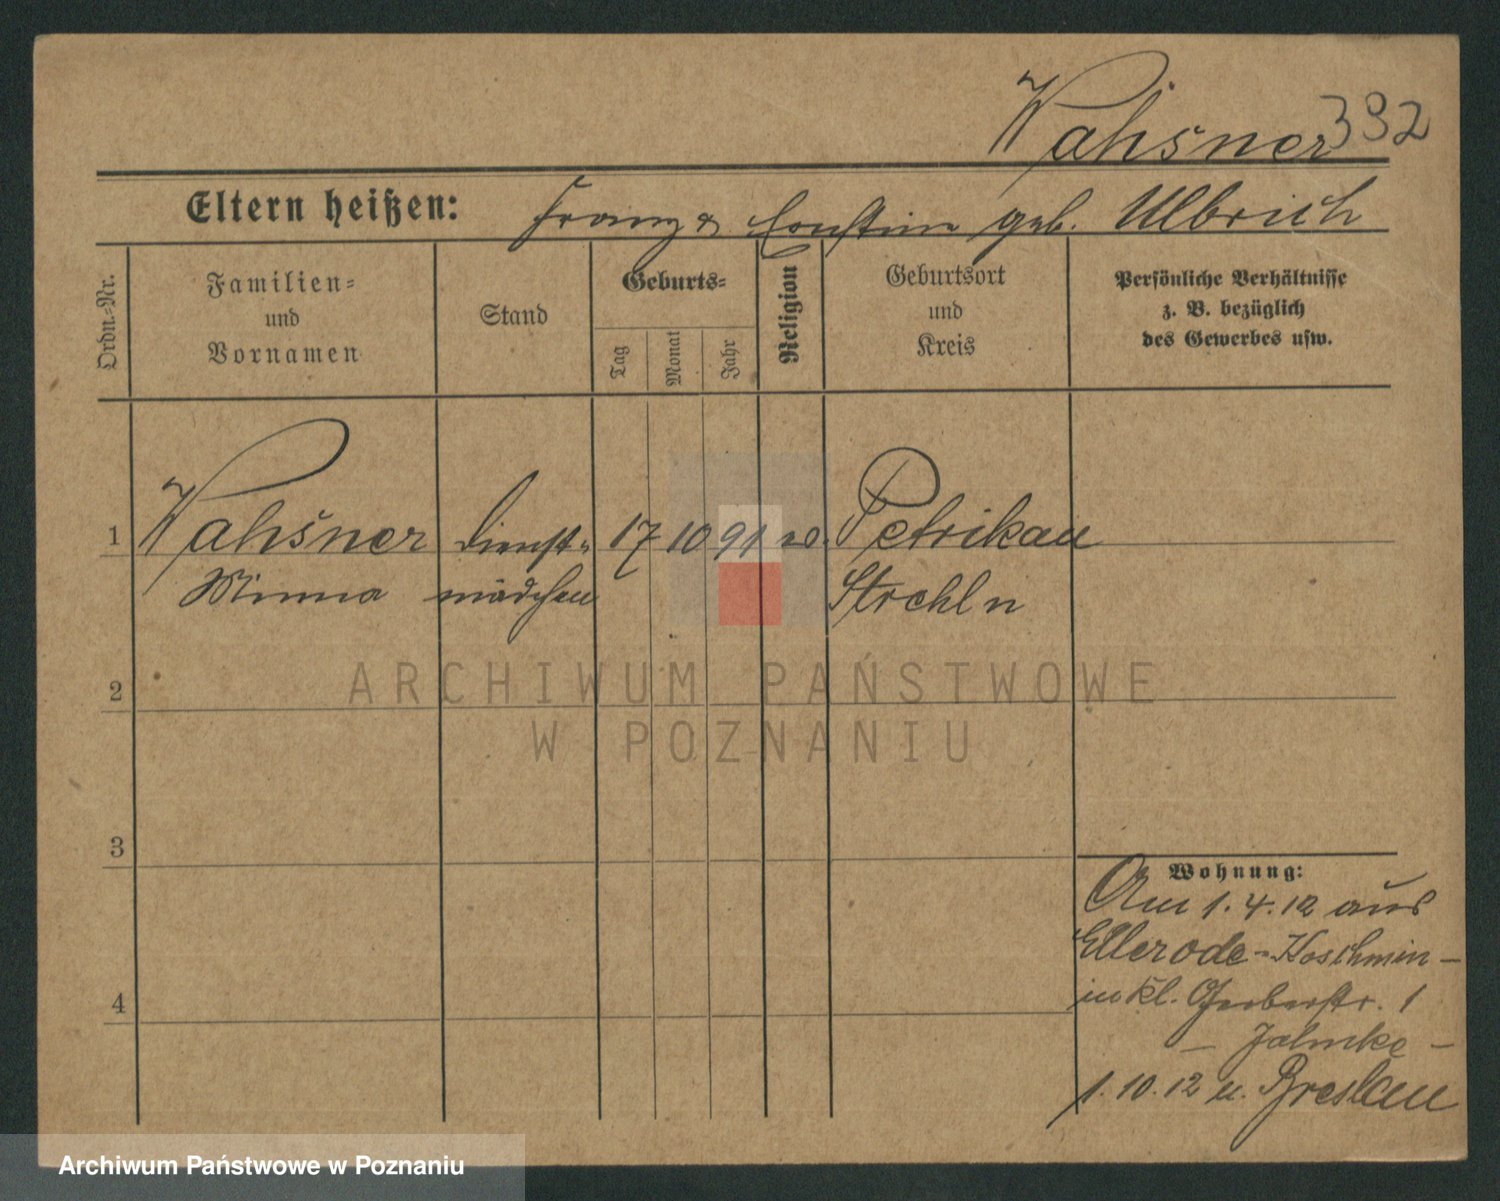 Wahsner 392
Eltern heißen: Franz & Ernstine geb. Ulbrich
Ordn.-Nr.
Familien-
und
Vornamen
Stand
Geburts-
Tag
Monat
Jahr
Religion
Geburtsort
und
Kreis
Persönliche Verhältnisse
z. B. bezüglich
des Gewerbes usw.
1 Wahsner Dienst- 17 10 91 Petrikau
Minna mädchen Strehln
ARCHIWUM PAŃSTWOWE
2
W POZNANIU
3
Wohnung:
Am 1.4.12 aus
Ellerode-Koschmin-
in kl. Gerberstr. 1
- Jahnke -
4
1.10.12 n. Breslau
Archiwum Państwowe w Poznaniu